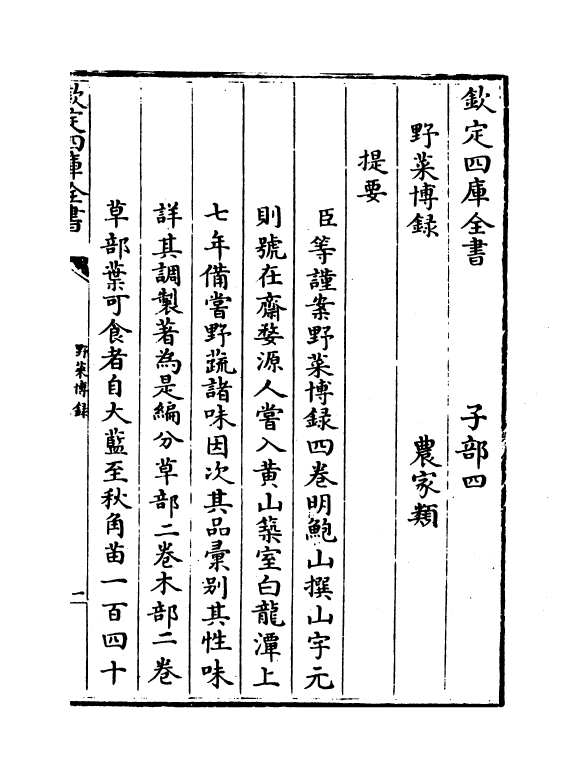 欽定四庫全書　子部四
野菜博録　農家類
提要
臣等謹案野菜博録四卷明鮑山撰山字元
則號在齋婺源人嘗入黃山築室白龍潭上
七年備嘗野蔬諸味因次其品彙別其性味
詳其調製著為是編分草部二卷木部二卷
草部葉可食者自大藍至秋角苗一百四十
欽定四庫全書
野菜博録
二